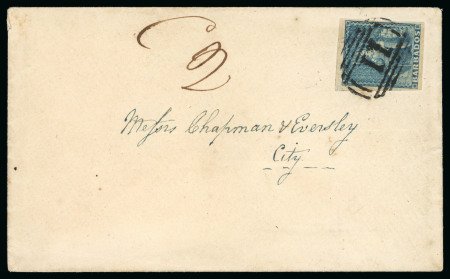 2
Messrs Chapman & Eversley
City
BARBADOS